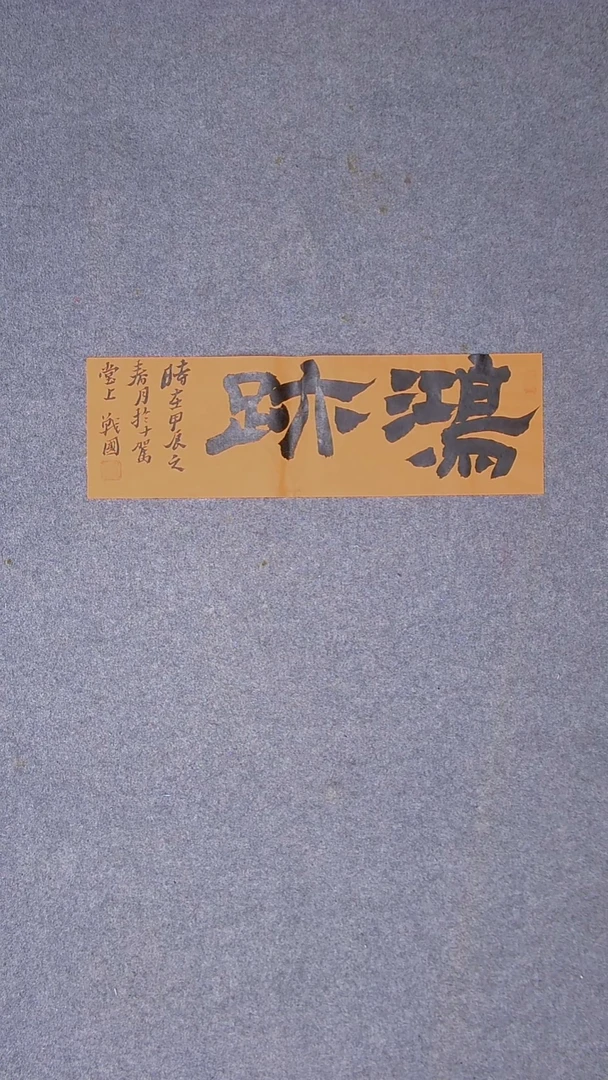 鴻跡
時在甲辰之
春月於十駕
堂上 戰國